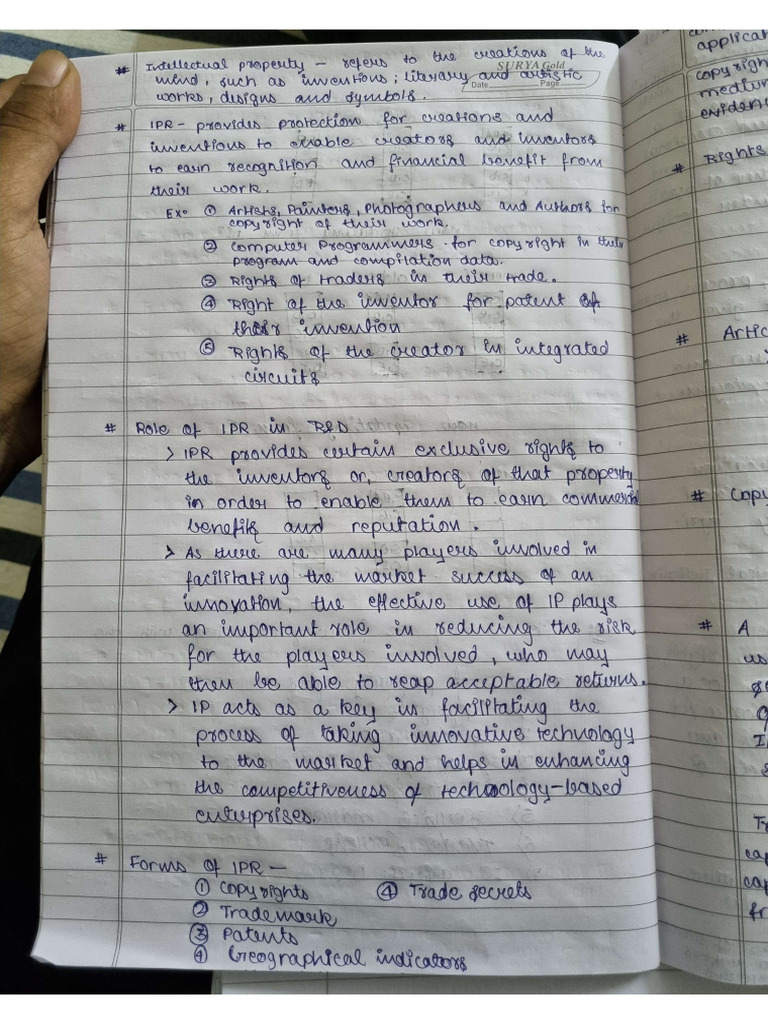 SURYA Gold
Date Page
# Intellectual property – refers to the creations of the
mind, such as inventions; literary and artistic
works, designs and symbols.
# IPR – provides protection for creations and
inventions to enable creators and inventors
to earn recognition and financial benefit from
their work.
Ex: ① Artists, Painters, Photographers and Authors for
copyright of their work.
② Computer Programmers for copyright in their
program and compilation data.
③ Rights of traders in their trade.
④ Right of the inventor for patent of
their invention
⑤ Rights of the creator in integrated
circuits
# Role of IPR in R&D
> IPR provides certain exclusive rights to
the inventors or, creators of that property
in order to enable them to earn commercial
benefits and reputation.
> As there are many players involved in
facilitating the market success of an
innovation, the effective use of IP plays
an important role in reducing the risk
for the players involved, who may
then be able to reap acceptable returns.
> IP acts as a key in facilitating the
process of taking innovative technology
to the market and helps in enhancing
the competitiveness of technology-based
enterprises.
# Forms of IPR –
① Copyrights ④ Trade secrets
② Trademark
③ Patents
④ Geographical indicators
applicat
copyrigh
medium
evidenc
# Rights
# Artic
# Copy
# A
us
Tr
cap
cap
fr